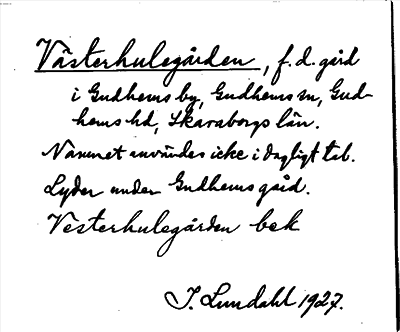 Västerhulegården, f.d. gård
i Gudhems by, Gudhems sn, Gud-
hems hd, Skaraborgs län.
Namnet användes icke i dagligt tal.
Lyder under Gudhems gård.
Vesterhulegården bek
I. Lundahl 1927.